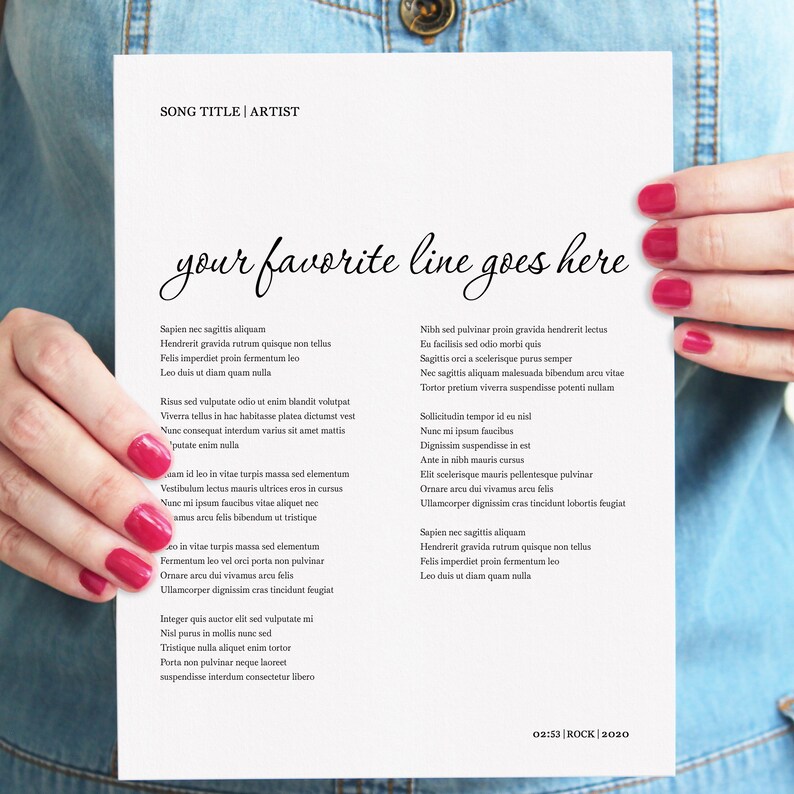 SONG TITLE | ARTIST
your favorite line goes here
Sapien nec sagittis aliquam
Hendrerit gravida rutrum quisque non tellus
Felis imperdiet proin fermentum leo
Leo duis ut diam quam nulla
Risus sed vulputate odio ut enim blandit volutpat
Viverra tellus in hac habitasse platea dictumst vest
Nunc consequat interdum varius sit amet mattis
enim nulla
id leo in vitae turpis massa sed elementum
Vestibulum lectus mauris ultrices eros in cursus
Nunc mi ipsum faucibus vitae aliquet nec
arcu felis bibendum ut tristique
Leo in vitae turpis massa sed elementum
Fermentum leo vel orci porta non pulvinar
Ornare arcu dui vivamus arcu felis
Ullamcorper dignissim cras tincidunt feugiat
Integer quis auctor elit sed vulputate mi
Nisl purus in mollis nunc sed
Tristique nulla aliquet enim tortor
Porta non pulvinar neque laoreet
suspendisse interdum consectetur libero
Nibh sed pulvinar proin gravida hendrerit lectus
Eu facilisis sed odio morbi quis
Sagittis orci a scelerisque purus semper
Nec sagittis aliquam malesuada bibendum arcu vitae
Tortor pretium viverra suspendisse potenti nullam
Sollicitudin tempor id eu nisl
Nunc mi ipsum faucibus
Dignissim suspendisse in est
Ante in nibh mauris cursus
Elit scelerisque mauris pellentesque pulvinar
Ornare arcu dui vivamus arcu felis
Ullamcorper dignissim cras tincidunt lobortis feugiat
Sapien nec sagittis aliquam
Hendrerit gravida rutrum quisque non tellus
Felis imperdiet proin fermentum leo
Leo duis ut diam quam nulla
02:53 | ROCK | 2020